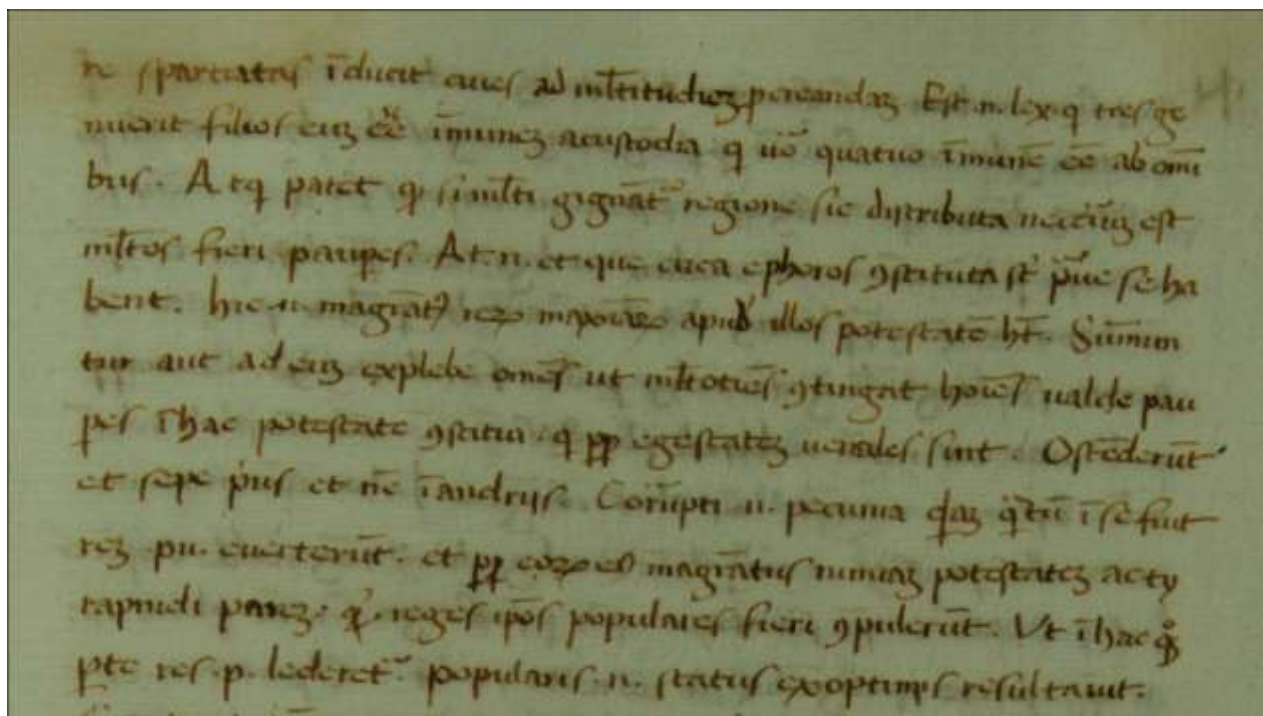 re spartiatas īducit cives ad ml̄titudineȝ procreandaȝ. Est .n. lex q̄ tres ge
nuerit filios euȝ eē īmuneȝ a custodia q̄ uō quatuor īmunē eē ab omī
bus. Atq̄ patet qꝫ si ml̄ti gignāt᷑ regione sic distributa neccīuȝ est
ml̄tos fieri paupes. At .n. et que circa ephoros ꝯstituta st̄ praue se ha
bent. Hic .n. magrāt᷒ reꝝ maioꝝ apud illos potestatē hꝫ. Summun
tur aut ad euȝ ex plebe omēs ut ml̄totiēs ꝯtingat hoīes ualde pau
pes ī hac potestate ꝯstitui q̄ ꝓp egestateȝ uenales sint. Ostēderūt
et sepe prius et nē ī andrijs. Corrupti .n. pecunia qdaȝ q̄tū ī se fuit
reȝ pu. euerterūt. et ꝓp eoꝝ magrātus nimiaȝ potestateȝ ac ty
rapnidi pareȝ. reges ipōs populares fieri ꝯpulerūt. Ut ī hac qꝫ
pte res .p. lederet᷑. popularis .n. status ex optimis resultauit.